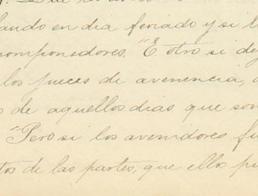 dando en dia feriado y si l
componedores. E otro si de
los jueces de avenencia,
s de aquellos dias que son
Pero si los avenidores fu
tos de las partes, que ellos pu